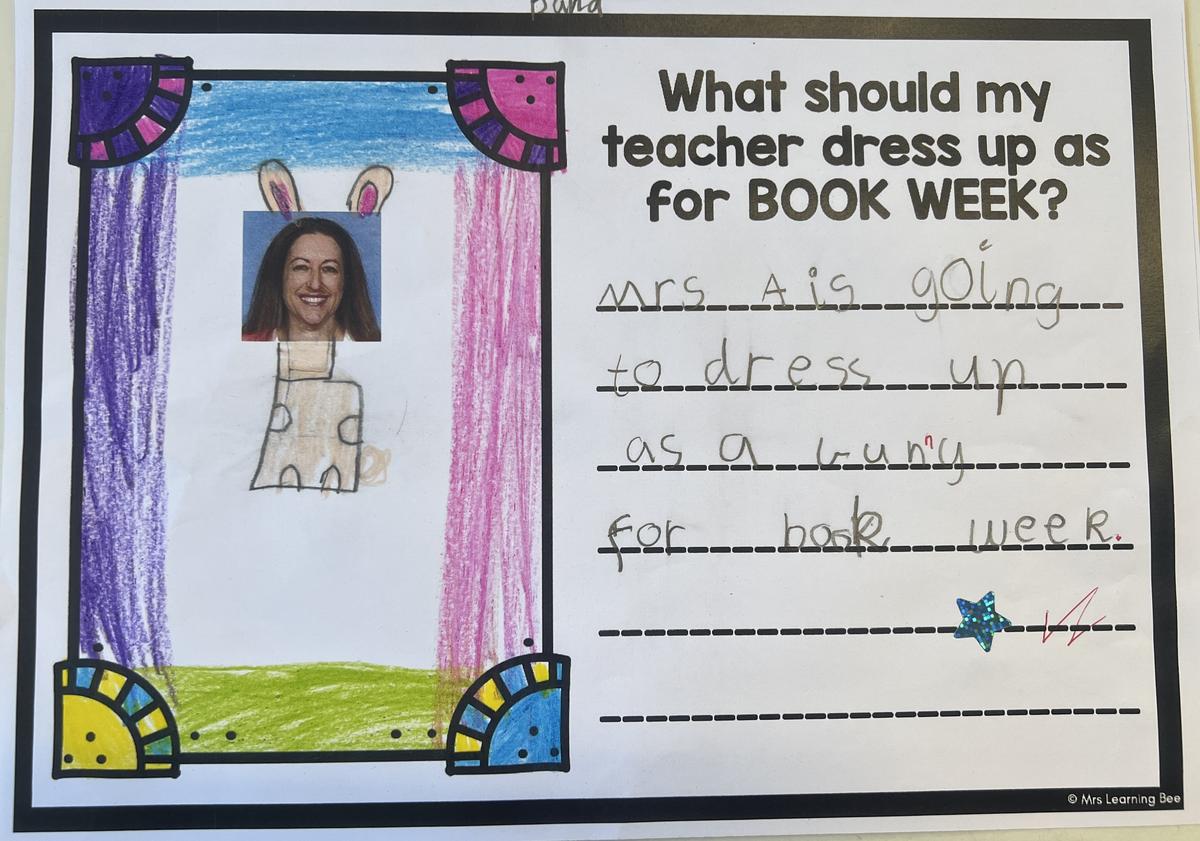 What should my
teacher dress up as
for BOOK WEEK?
mrs A is going
to dress up
as a bunny
for book week.
© Mrs Learning Bee